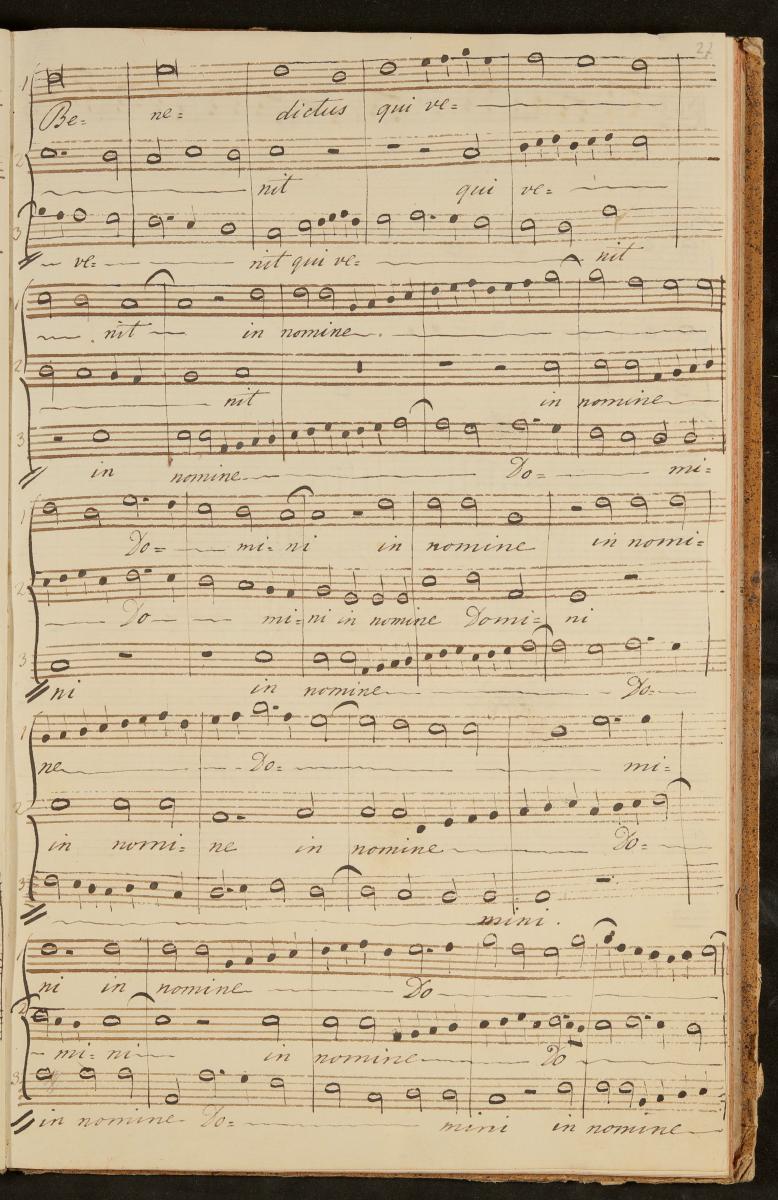 27
1 Be= ne= dictus qui ve=
2 nit qui ve=
3 ve= nit qui ve= nit
1 nit in nomine
2 nit in nomine
3 in nomine Do= mi=
1 Do= mi= ni in nomine in nomi=
2 Do mi= ni in nomine Domi= ni
3 ni in nomine Do=
1 ne Do= mi=
2 in nomi= ne in nomine Do=
3 mini.
1 ni in nomine Do
2 mi= ni in nomine Do
3 in nomine Do= mini in nomine